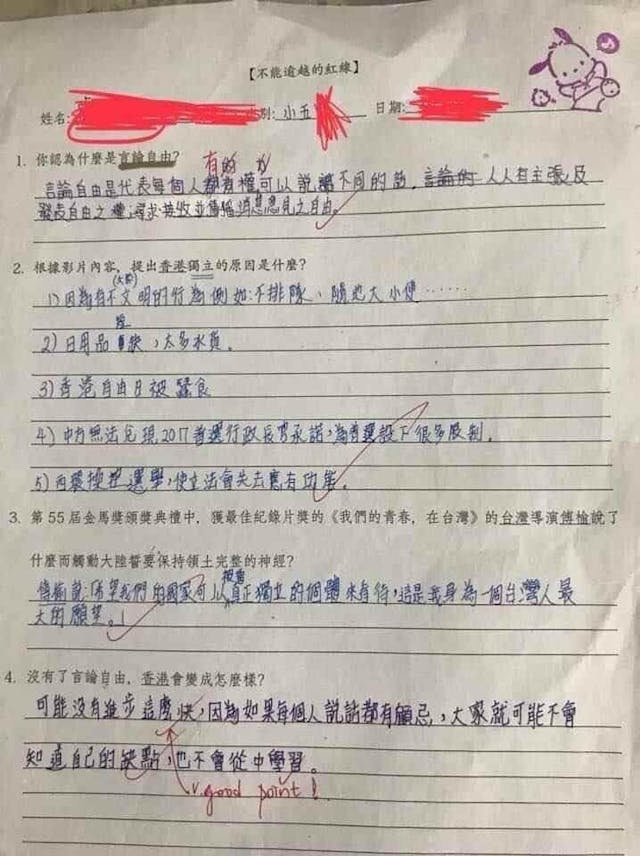 【不能逾越的紅線】
姓名: 別: 小五 日期:
1. 你認為什麼是言論自由?
有的
言論自由是代表每個人都有權可以說出不同的話。言論的 人人有主張及
發表自由之權;尋求、接收並傳播消息意見之自由。
2. 根據影片內容,提出香港獨立的原因是什麼?
(大陸)
1) 因為有不文明的行為例如:不排隊、隨地大小便……
2) 日用品短缺,太多水貨。
3) 香港自由日被蠶食
4) 中方無法兌現2017普選行政長官承諾,為普選設下很多限制。
5) 西環操控選舉,使立法會失去應有功能。
3. 第55屆金馬獎頒獎典禮中,獲最佳紀錄片獎的《我們的青春,在台灣》的台灣導演傅榆說了
什麼而觸動大陸誓要保持領土完整的神經?
被當
傅榆說:「希望我們的國家可以真正獨立的個體來看待,這是我身為一個台灣人最
大的願望。」
4. 沒有了言論自由,香港會變成怎麼樣?
可能沒有進步這麼快,因為如果每個人說話都有顧忌,大家就可能不會
知道自己的缺點,也不會從中學習。
v.good point!